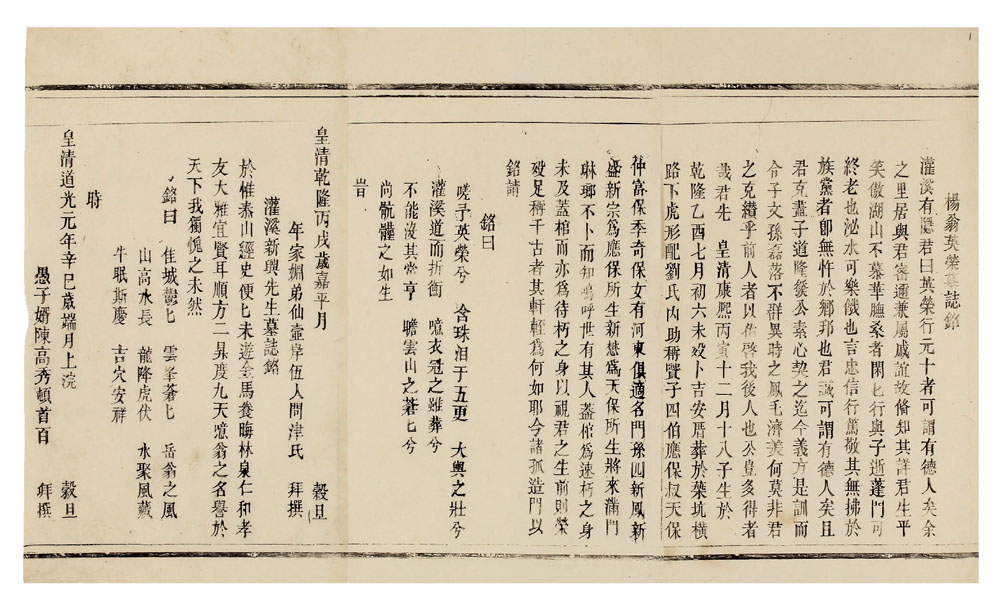 楊翁英榮墓誌銘
灌溪有隱君曰英榮行元十者可謂有德人矣余
之里居與君密邇兼屬戚誼故俻知其詳君生平
笑傲湖山不慕華膴桑者閑匕行與子逝蓬門可
終老也泌水可樂饑也言忠信行篤敬其無拂於
族黨者卽無忤於鄉邦也君誠可謂有德人矣且
君克盡子道隆燊公素心契之迄今義方是訓而
令子文孫磊落不群異時之鳳毛濟美何莫非君
之克纘乎前人者以佑啓我後人也公豈多得者
哉君先　皇清康熙丙寅十二月十八子生於
乾隆乙酉七月初六未歿卜吉安厝葬於葉坑橫
路下虎形配劉氏內助稱賢子四伯應保叔天保
仲富保季奇保女有河東俱適名門孫四新鳳新
盛新宗爲應保所生新懋爲天保所生將來滿門
琳瑯不卜而知嗚呼世有其人蓋棺爲速朽之身
未及蓋棺而亦爲待朽之身以視君之生前則榮
歿足稱千古者其軒輊爲何如耶今諸孤造門以
銘請
銘曰
嗟子英榮兮　含珠泪于五更　大輿之壯兮
灌溪道而折衝　噫衣冠之雖葬兮
不能沒其嘗亨　瞻雲山之蒼匕兮
尚骯髒之如生
旹
皇清乾隆丙戌歲嘉平月　穀旦
年家姻弟仙壺岸伍人問津氏　拜撰
灌溪新興先生墓誌銘
於惟泰山經史便匕未遊金馬養晦林泉仁和孝
友大雅宜賢耳順方二昇度九天噫翁之名譽於
天下我獨愧之未然
銘曰　佳城鬱匕　雲峯蒼匕　岳翁之風
山高水長　龍降虎伏　水聚風藏
牛眠斯慶　吉穴安祥
時
皇清道光元年辛巳歲端月上浣　穀旦
愚子婿陳高秀頓首百　拜撰